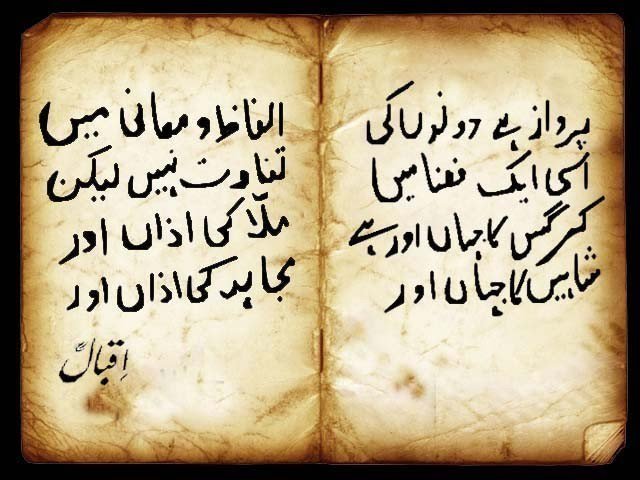 پرواز ہے دونوں کی
اسی ایک فضا میں
کرگس کا جہاں اور ہے
شاہیں کا جہاں اور
الفاظ و معانی میں
تفاوت نہیں لیکن
ملّا کی اذاں اور
مجاہد کی اذاں اور
اِقبالؒ